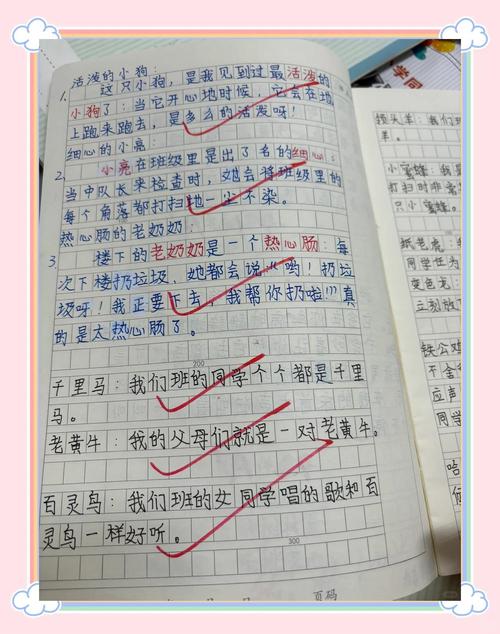 活泼的小狗:
1. 这只小狗,是我见到过最活泼的
小狗了:当它开心地时候,它会在地
上跑来跑去,是多么的活发呀!
细心的小亮:
2. 小亮在班级里是出了名的细心:
当中队长来检查时,她会将班级里的
每个角落都打扫地一尘不染。
热心肠的老奶奶:
3. 楼下的老奶奶是一个热心肠:每
次下楼扔垃圾,她都会说:“哟!扔垃
圾呀!我正要下去,我帮你扔啦!”真
的是太热心肠了。
200
千里马:我们班的同学个个都是千里
马。
老黄牛:我的父母们就是一对老黄牛。
百灵鸟:我们班的女同学唱的歌和百
灵鸟一样好听。
300
页码
领头羊:我们
羊。
小蜜蜂:我是
打扫时非常
只小蜜蜂。
纸老虎:我
同学任为
变色龙:
立刻放
铁公鸡
不舍
应声
同学
哈
候
学同